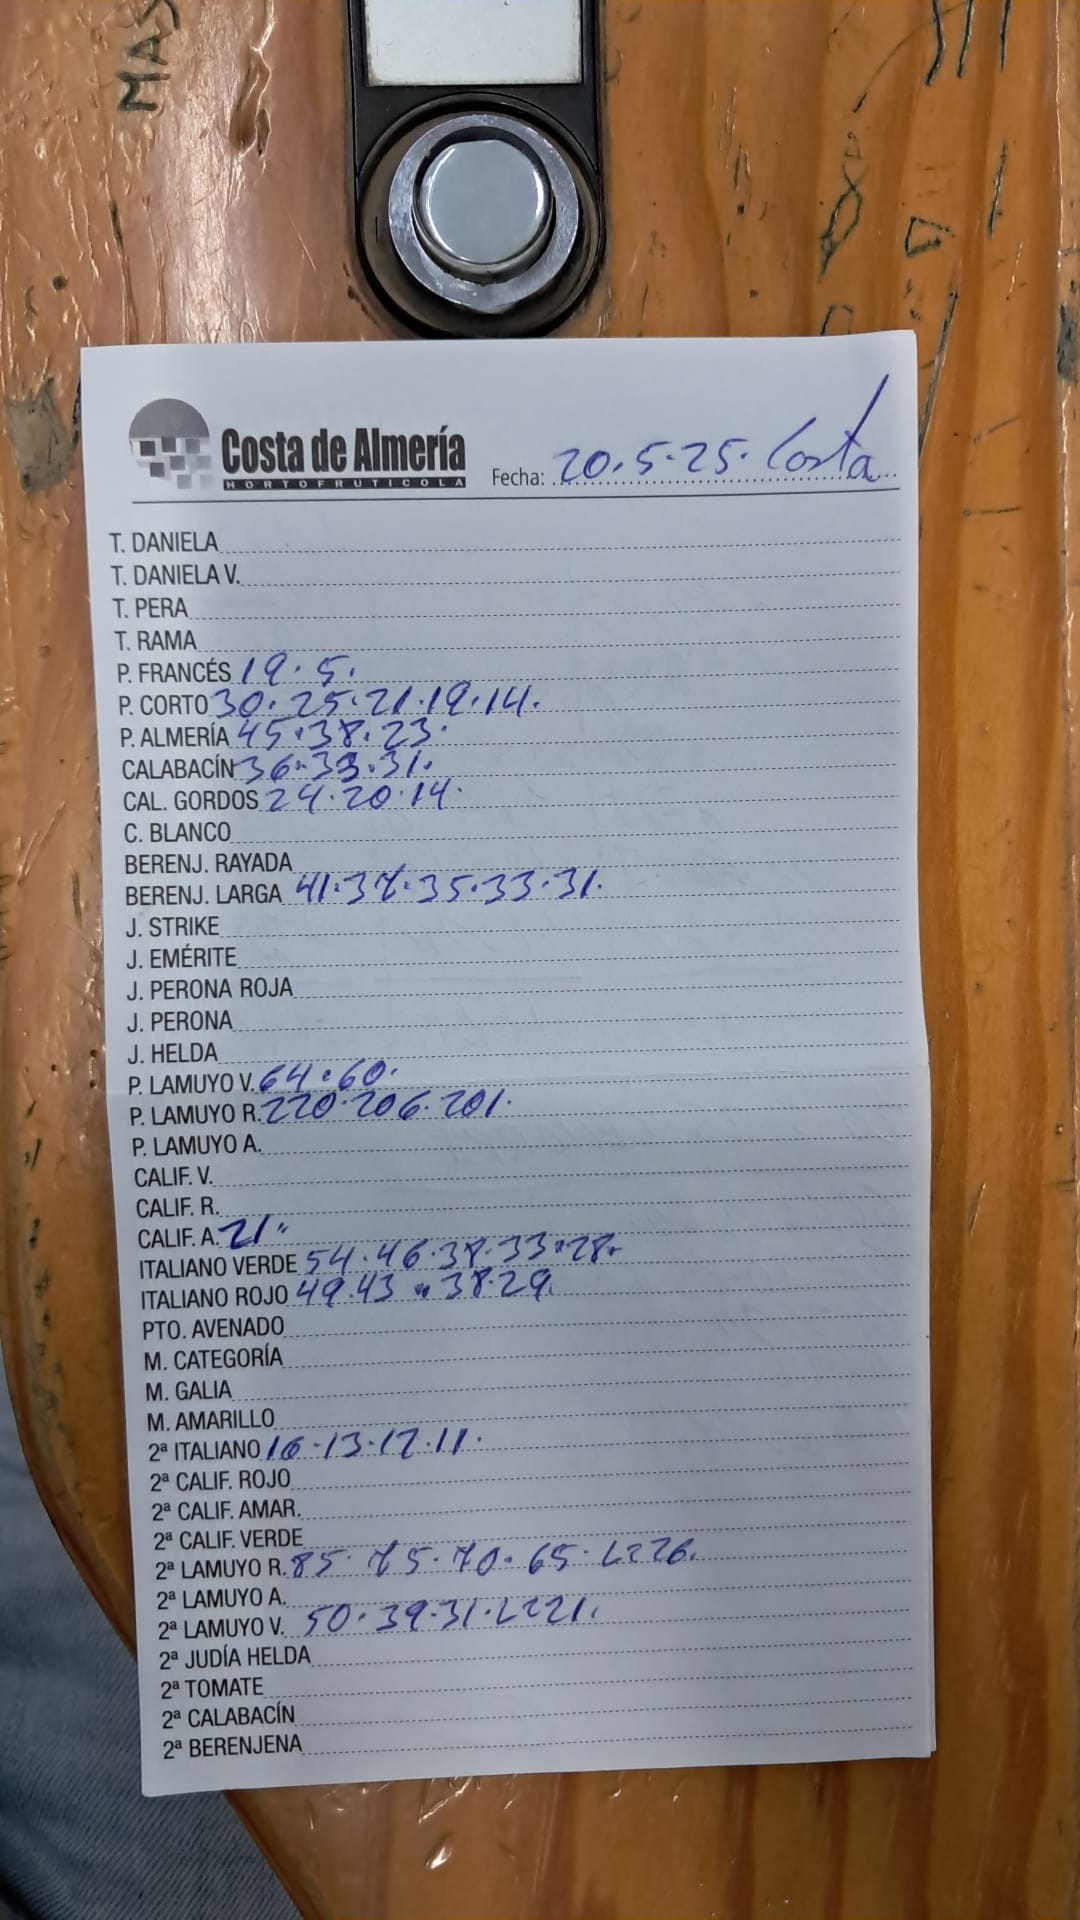 MAS
Costa de Almería
HORTOFRUTICOLA
Fecha: 20.5.25. Costa
T. DANIELA
T. DANIELA V.
T. PERA
T. RAMA
P. FRANCÉS 19.5.
P. CORTO 30.25.21.19.14.
P. ALMERÍA 45.38.23.
CALABACÍN 36.33.31.
CAL. GORDOS 24.20.14.
C. BLANCO
BERENJ. RAYADA
BERENJ. LARGA 41.37.35.33.31.
J. STRIKE
J. EMÉRITE
J. PERONA ROJA
J. PERONA
J. HELDA
P. LAMUYO V. 64.60.
P. LAMUYO R. 220.206.201.
P. LAMUYO A.
CALIF. V.
CALIF. R.
CALIF. A. 21.
ITALIANO VERDE 54.46.38.33.28.
ITALIANO ROJO 49.43.38.29.
PTO. AVENADO
M. CATEGORÍA
M. GALIA
M. AMARILLO
2ª ITALIANO 16.13.12.11.
2ª CALIF. ROJO
2ª CALIF. AMAR.
2ª CALIF. VERDE
2ª LAMUYO R. 85.75.70.65.L=26.
2ª LAMUYO A.
2ª LAMUYO V. 50.39.31.L=21.
2ª JUDÍA HELDA
2ª TOMATE
2ª CALABACÍN
2ª BERENJENA